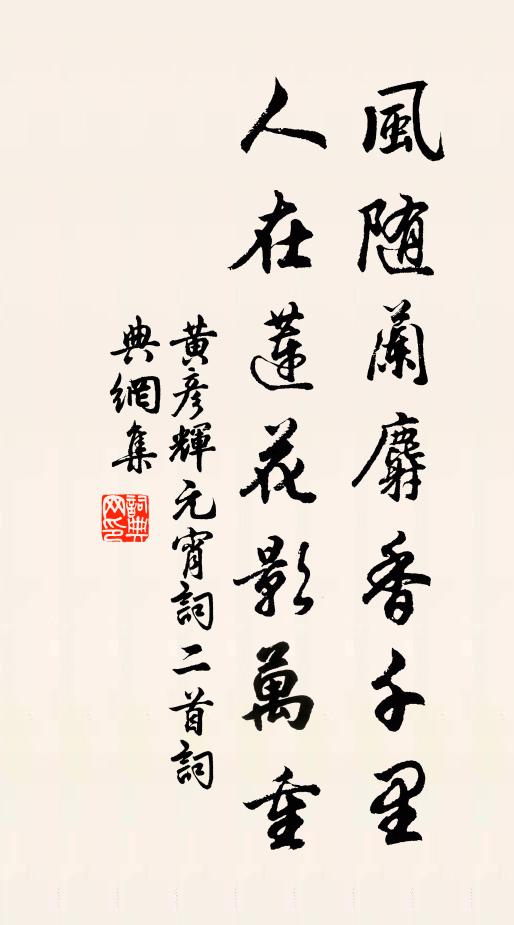 風随蘭麝香千里
人在蓮花影萬重
黃彥輝元宵詞二首詞
典網集
詞典
网印